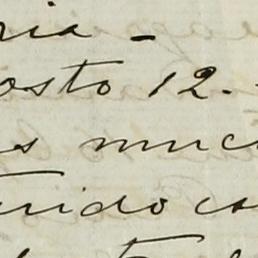 ria -
osto 12. -
s muc
rido co